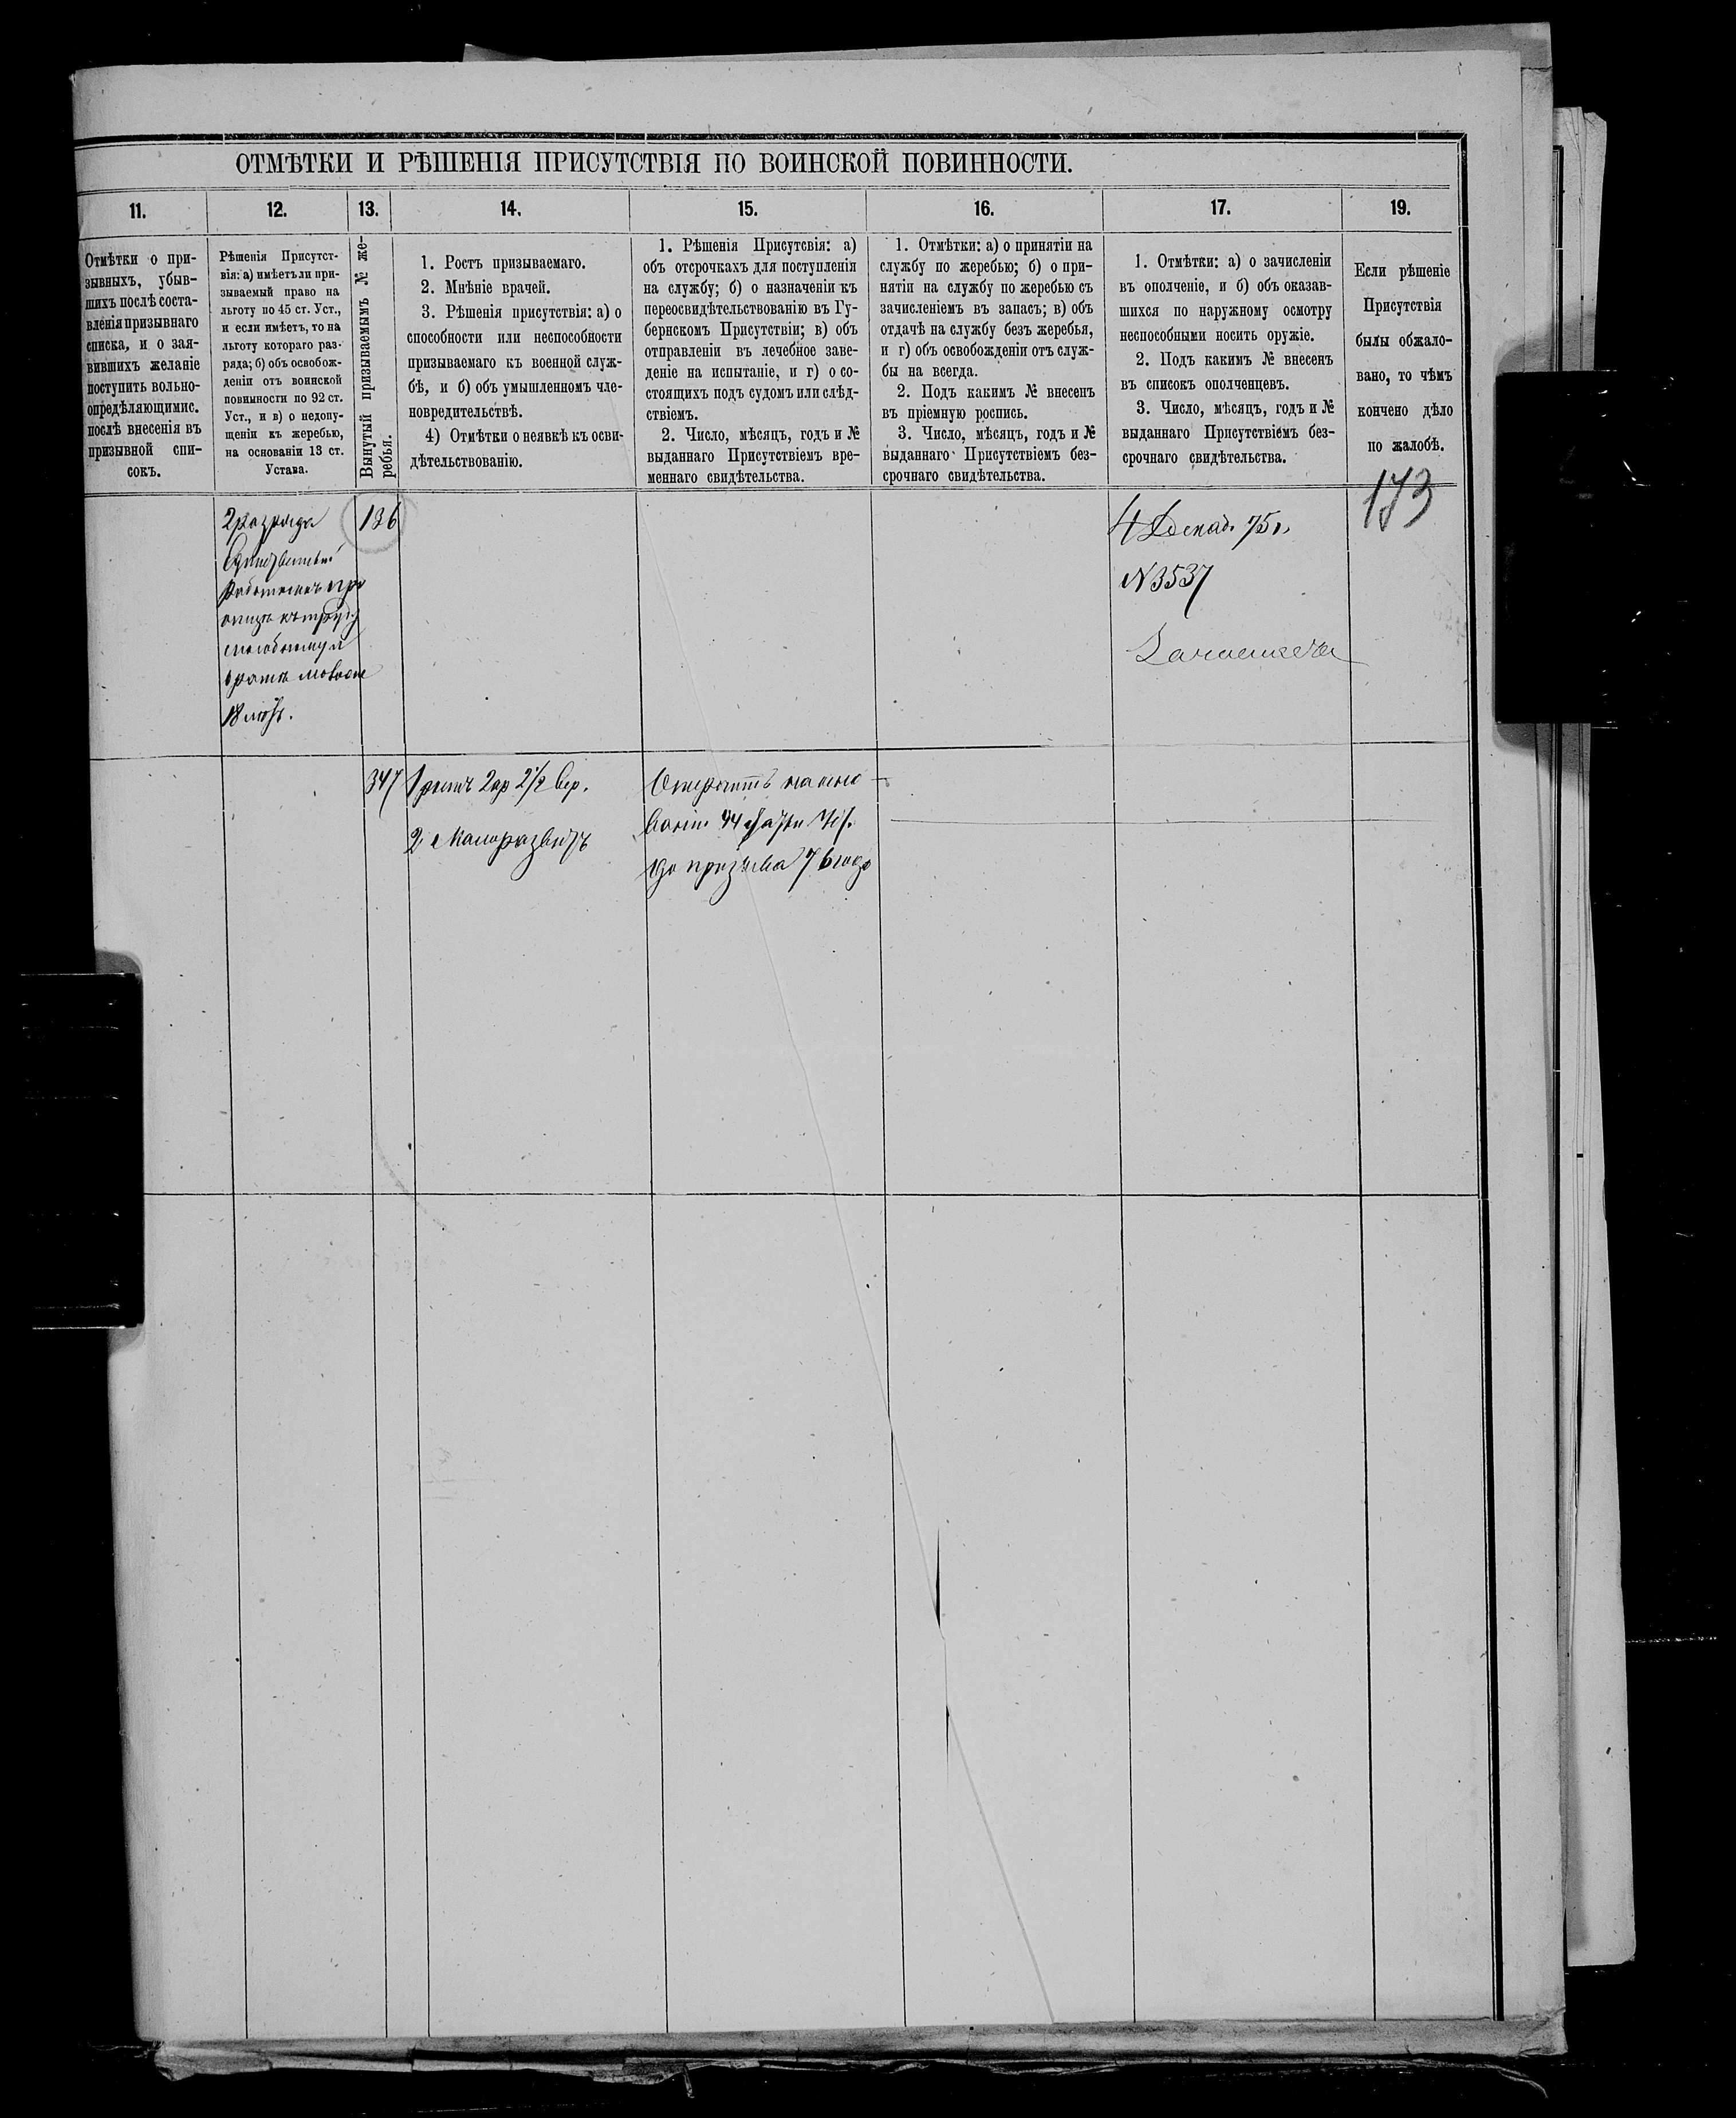 ОТМѢТКИ И РѢШЕНІЯ ПРИСУТСТВІЯ ПО ВОИНСКОЙ ПОВИННОСТИ.
11.
12.
13.
14.
15.
16.
17.
19.
Отмѣтки о при-
зывныхъ, убыв-
шихъ послѣ соста-
вленія призывнаго
списка, и о зая-
вившихъ желаніе
поступить вольно-
опредѣляющимис.
послѣ внесенія въ
призывной спи-
сокъ.
Рѣшенія Присутст-
вія: а) имѣетъ ли при-
зываемый право на
льготу по 45 ст. Уст.,
и если имѣетъ, то на
льготу котораго раз-
ряда; б) объ освобож-
деніи отъ воинской
повинности по 92 ст.
Уст., и в) о недопу-
щеніи къ жеребью,
на основаніи 13 ст.
Устава.
Вынутый призываемымъ № же-
ребья.
1. Ростъ призываемаго.
2. Мнѣніе врачей.
3. Рѣшенія присутствія: а) о
способности или неспособности
призываемаго къ военной служ-
бѣ, и б) объ умышленномъ чле-
новредительствѣ.
4) Отмѣтки о неявкѣ къ осви-
дѣтельствованію.
1. Рѣшенія Присутсвія: а)
объ отсрочкахъ для поступленія
на службу; б) о назначеніи къ
переосвидѣтельствованію въ Гу-
бернскомъ Присутствіи; в) объ
отправленіи въ лечебное заве-
деніе на испытаніе, и г) о со-
стоящихъ подъ судомъ или слѣд-
ствіемъ.
2. Число, мѣсяцъ, годъ и №
выданнаго Присутствіемъ вре-
меннаго свидѣтельства.
1. Отмѣтки: а) о принятіи на
службу по жеребью; б) о при-
нятіи на службу по жеребью съ
зачисленіемъ въ запасъ; в) объ
отдачѣ на службу безъ жеребья,
и г) объ освобожденіи отъ служ-
бы на всегда.
2. Подъ какимъ № внесенъ
въ пріемную роспись.
3. Число, мѣсяцъ, годъ и №
выданнаго Присутствіемъ без-
срочнаго свидѣтельства.
1. Отмѣтки: а) о зачисленіи
въ ополченіе, и б) объ оказав-
шихся по наружному осмотру
неспособными носить оружіе.
2. Подъ какимъ № внесенъ
въ списокъ ополченцевъ.
3. Число, мѣсяцъ, годъ и №
выданнаго Присутствіемъ без-
срочнаго свидѣтельства.
Если рѣшеніе
Присутствія
было обжало-
вано, то чѣмъ
кончено дѣло
по жалобѣ.
173
2 разряда
работникъ при
отцѣ къ труду
способному и
братѣ моложе
18 лѣтъ.
136
4 Декаб. 75 г.
N 3537
347
1 ростъ 2 ар 2 1/2 вер.
2 Малоразвитъ
Отсрочить на осно
ваніи 44 Уст.
до призыва 76 года